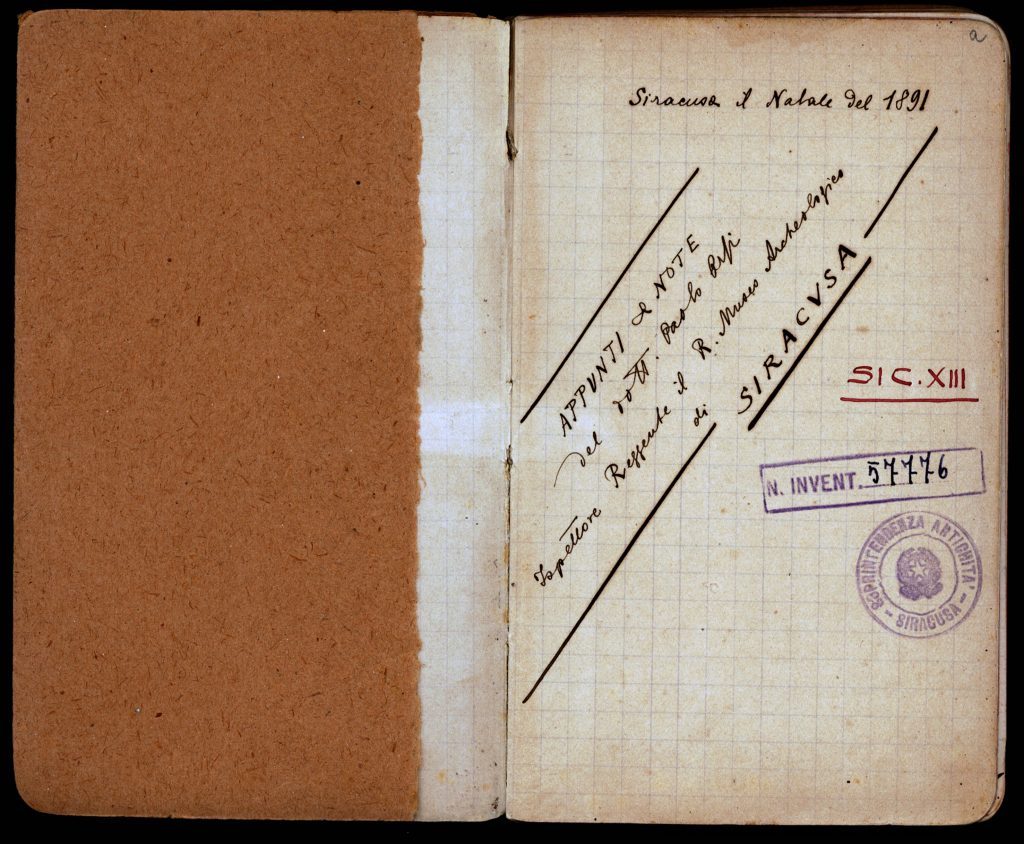 a
Siracusa il Natale del 1891
APPVNTI & NOTE
del dott. Paolo Orsi
Ispettore Reggente il R. Museo Archeologico
di SIRACVSA
SIC. XIII
N. INVENT. 57776
SOPRINTENDENZA ANTICHITA' - SIRACUSA -